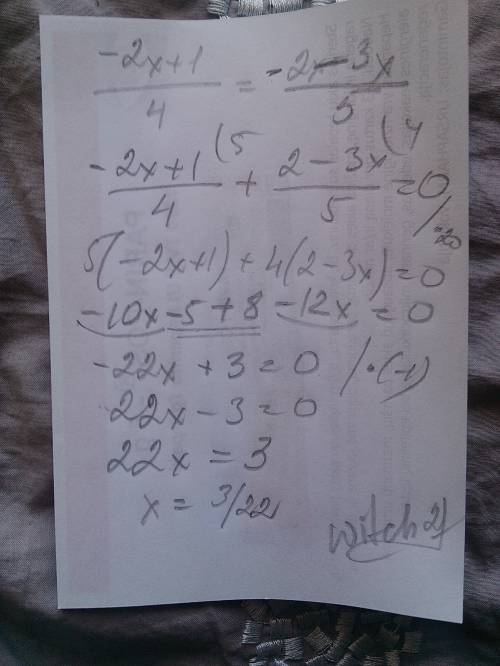 (-2x+1)/4 = -(2x-3x)/5
(-2x+1)/4 (5 + (2-3x)/5 (4 = 0 /·20
5(-2x+1) + 4(2-3x) = 0
-10x - 5 + 8 - 12x = 0
-22x + 3 = 0 /·(-1)
22x - 3 = 0
22x = 3
x = 3/22
witch21